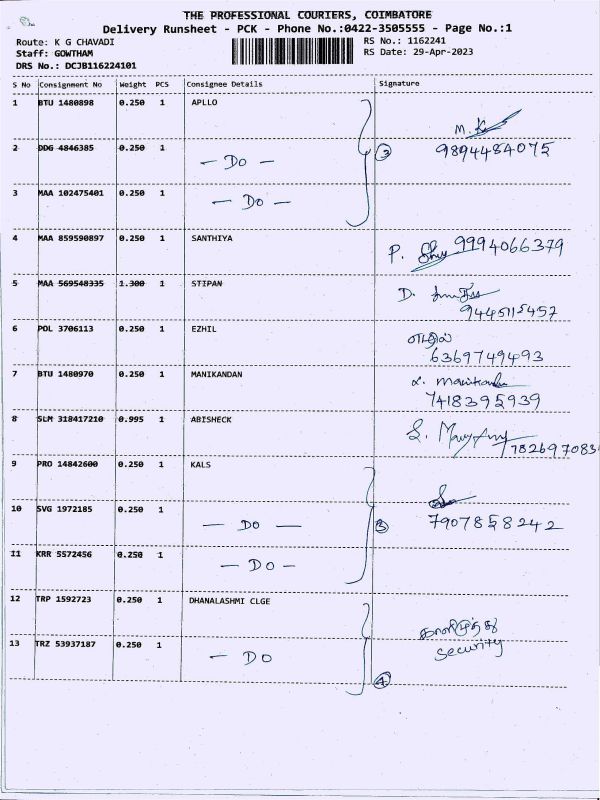 THE PROFESSIONAL COURIERS, COIMBATORE
Delivery Runsheet - PCK - Phone No.:0422-3505555 - Page No.:1
Route: K G CHAVADI
RS No.: 1162241
Staff: GOWTHAM
RS Date: 29-Apr-2023
DRS No.: DCJB116224101
S No Consignment No Weight PCS Consignee Details Signature
1 BTU 1480898 0.250 1 APLLO
M.
2 DDG 4846385 0.250 1 - Do - 3 9894484075
3 MAA 102475401 0.250 1 - Do -
4 MAA 859590897 0.250 1 SANTHIYA P. 9994066379
5 MAA 569548335 1.300 1 STIPAN D.
9445115457
6 POL 3706113 0.250 1 EZHIL எழில்
6369749493
7 BTU 1480970 0.250 1 MANIKANDAN
7418395939
8 SLM 318417210 0.995 1 ABISHECK S.
782697083
9 PRO 14842600 0.250 1 KALS
10 SVG 1972185 0.250 1 - Do - 3 7907858242
11 KRR 5572456 0.250 1 - Do -
12 TRP 1592723 0.250 1 DHANALASHMI CLGE
13 TRZ 53937187 0.250 1 - Do security